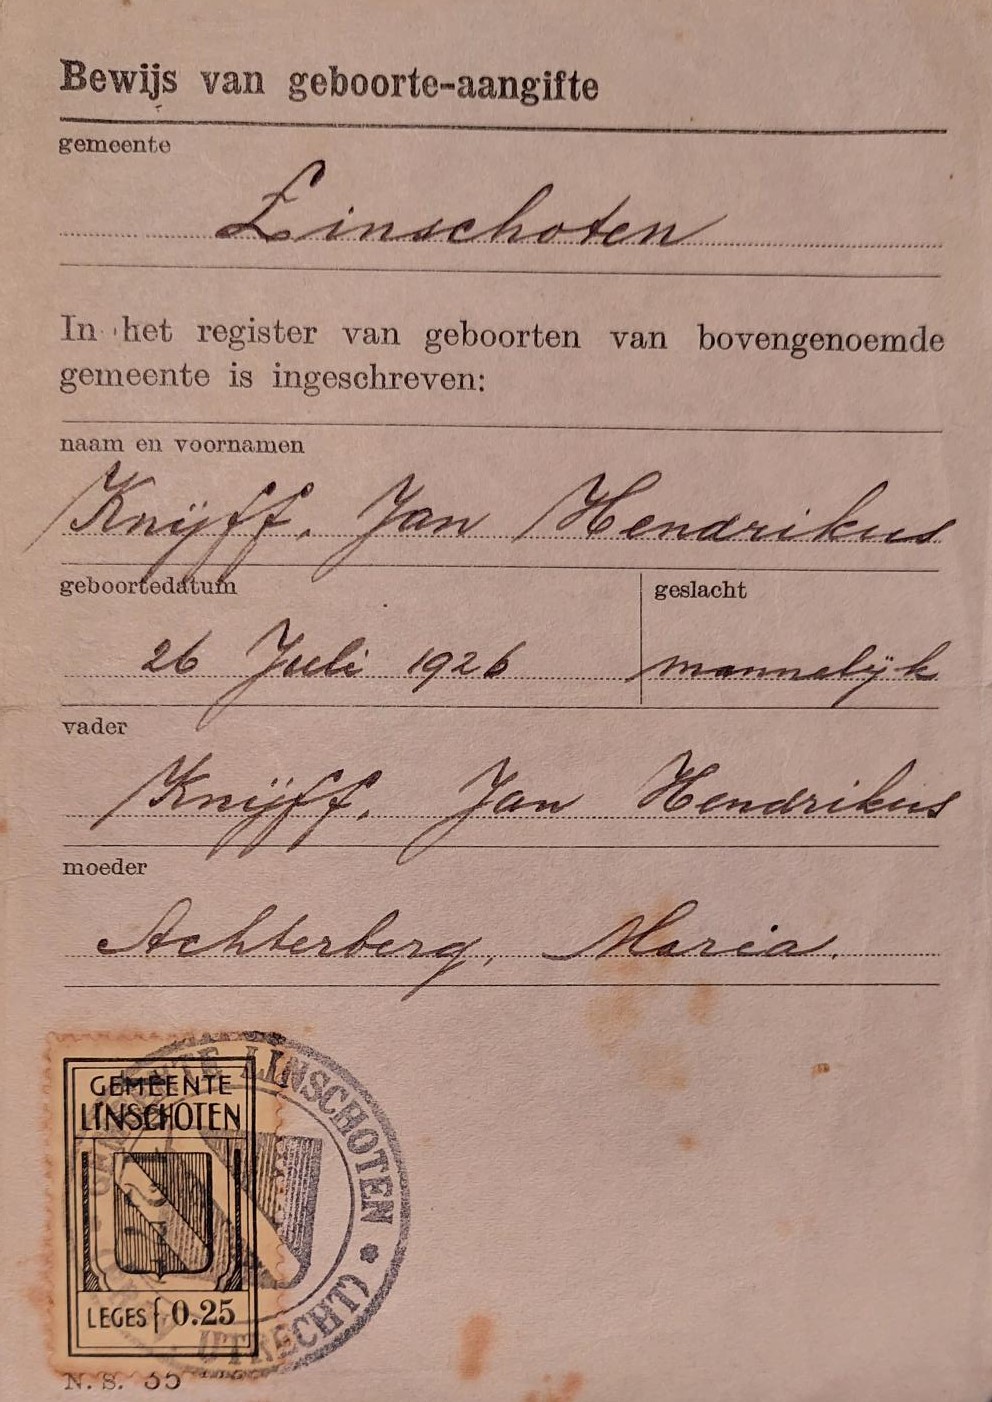 Bewijs van geboorte-aangifte
gemeente
Linschoten
In het register van geboorten van bovengenoemde
gemeente is ingeschreven:
naam en voornamen
Knijff, Jan Hendrikus
geboortedatum
geslacht
26 Juli 1926
mannelijk
vader
Knijff, Jan Hendrikus
moeder
Achterberg, Maria.
GEMEENTE LINSCHOTEN
(UTRECHT)
GEMEENTE
LINSCHOTEN
LEGES f 0.25
N. S. 35